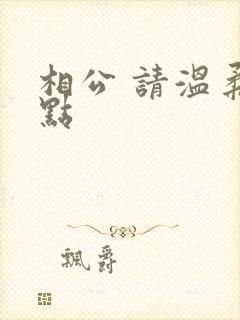 相公 請溫柔
點
飄爵